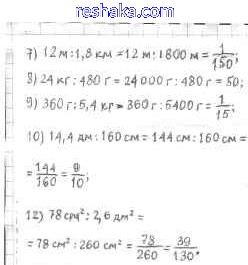 reshaka.com
7) 12 м : 1,8 км = 12 м : 1800 м = 1/150;
8) 24 кг : 480 г = 24 000 г : 480 г = 50;
9) 360 г : 5,4 кг = 360 г : 5400 г = 1/15;
10) 14,4 дм : 160 см = 144 см : 160 см =
= 144/160 = 9/10;
12) 78 см² : 2,6 дм² =
= 78 см² : 260 см² = 78/260 = 39/130.